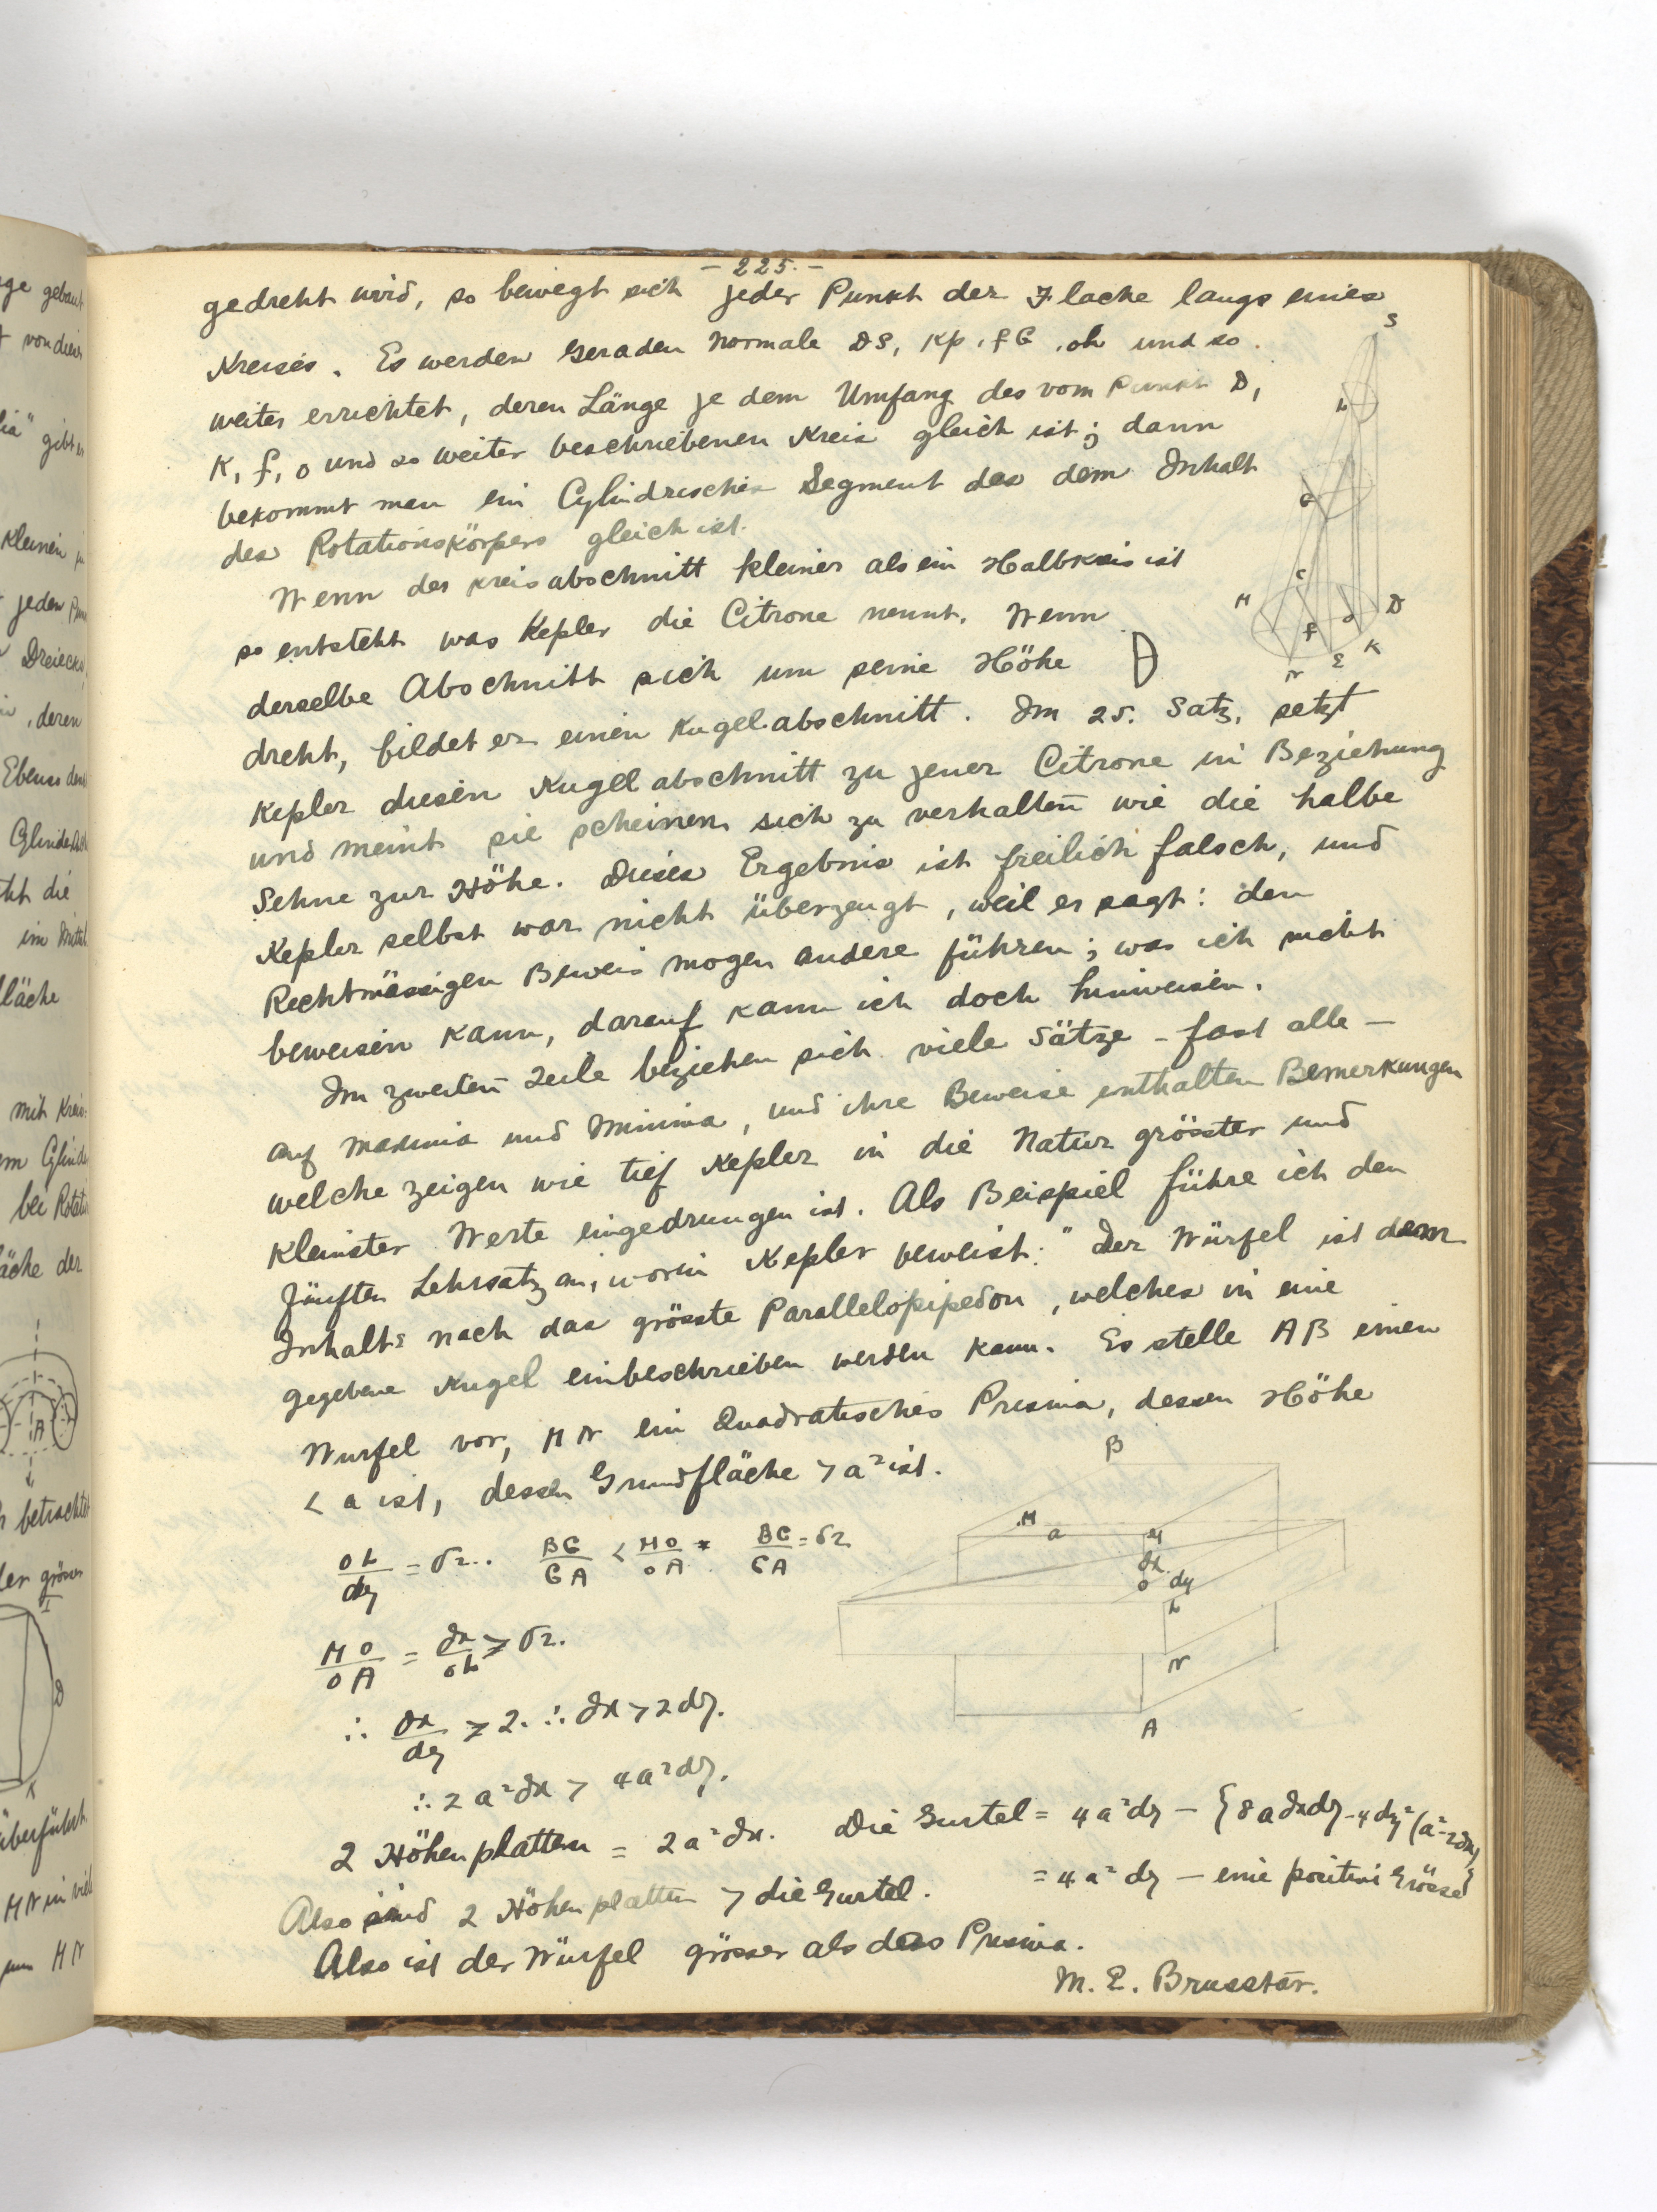 - 225. -
gedreht wird, so bewegt sich jeder Punkt der Flache langs eines
Kreises. Es werden Geraden Normale DS, Kp, fG, oh und so
weiter errichtet, deren Länge je dem Umfang des vom Punkt D,
K, f, o und so weiter beschriebenen Kreis gleich ist; dann
bekommt man ein Cylindrisches Segment das dem Inhalt
des Rotationskörpers gleich ist.
Wenn der Kreisabschnitt kleiner als ein Halbkreis ist
so entsteht was Kepler die Citrone nennt. Wenn
derselbe Abschnitt sich um seine Höhe
dreht, bildet er einen Kugelabschnitt. Im 25. Satz, setzt
Kepler diesen Kugelabschnitt zu jener Citrone in Beziehung
und meint sie scheinen sich zu verhalten wie die halbe
Sehne zur Höhe. Dieses Ergebnis ist freilich falsch, und
Kepler selbst war nicht überzeugt, weil er sagt: den
Rechtmässigen Beweis mogen andere führen; was ich nicht
beweisen kann, darauf kann ich doch hinweisen.
Im zweiten Teile beziehen sich viele Sätze - fast alle -
auf maxima und Minima, und ihre Beweise enthalten Bemerkungen
welche zeigen wie tief Kepler in die Natur grösster und
kleinster Werte eingedrungen ist. Als Beispiel führe ich den
fünften Lehrsatz an, worin Kepler beweist: "Der Würfel ist dem
Inhalte nach das grösste Parallelopipedon, welches in eine
gegebene Kugel einbeschrieben werden kann. Es stelle AB einen
Wurfel vor, MN ein Quadratisches Prisma, dessen Höhe
< a ist, dessen Grundfläche > a² ist.
OL/dy = √2.. BG/GA < MO/OA * BG/GA = √2
MO/OA = dx/OL > √2.
∴ dx/dy > 2. ∴ dx > 2dy.
∴ 2a²dx > 4a²dy.
2 Höhenplatten = 2a²dx. Die Gurtel = 4a²dy - {8a dxdy - 4dy²(a - 2dx)}
= 4a²dy - eine positive Grösse
Also sind 2 Höhenplatten > die Gurtel.
Also ist der Würfel grösser als das Prisma.
M. E. Brusstar.
S
L
G
C
M
D
f
o
K
E
N
B
M
a
y
dx
O
dy
L
N
A